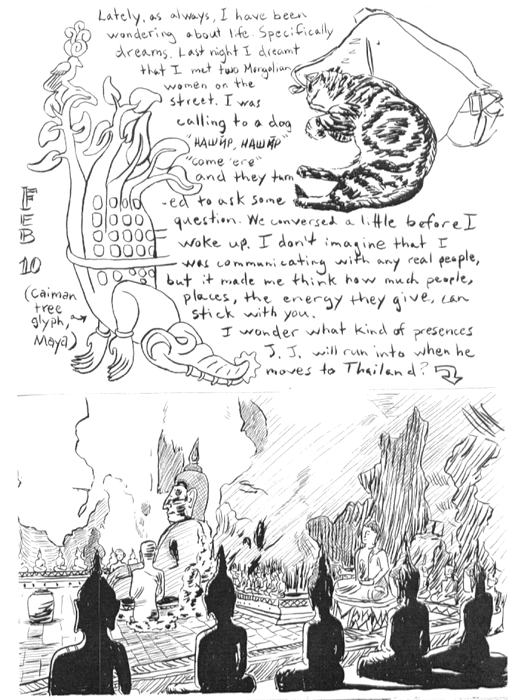 Lately, as always, I have been
wondering about life. Specifically
dreams. Last night I dreamt
that I met two Mongolian
women on the
street. I was
calling to a dog
"НАШЙР, НАШЙР"
"come 'ere"
and they turn
-ed to ask some
question. We conversed a little before I
woke up. I don't imagine that I
was communicating with any real people,
but it made me think how much people,
places, the energy they give, can
stick with you.
I wonder what kind of presences
J.J. will run into when he
moves to Thailand?
FEB
10
(Caiman
tree
glyph,
Maya)